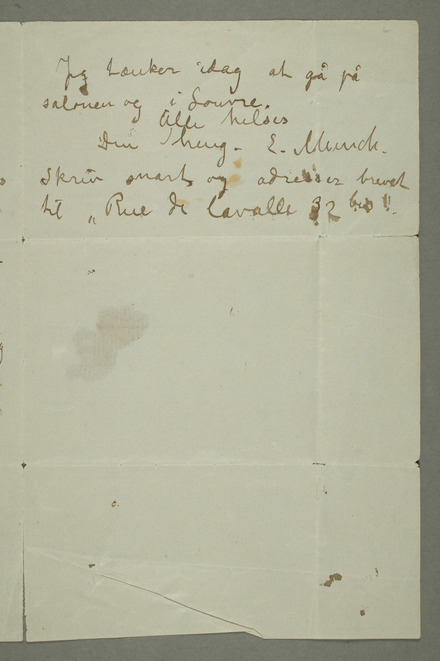 Jeg tænker idag at gå på
salonen og i Louvre.
Alle hilses
Din heng. E. Munch.
Skriv snart og adresser brevet
til „Rue de Lavalle 32 bis".